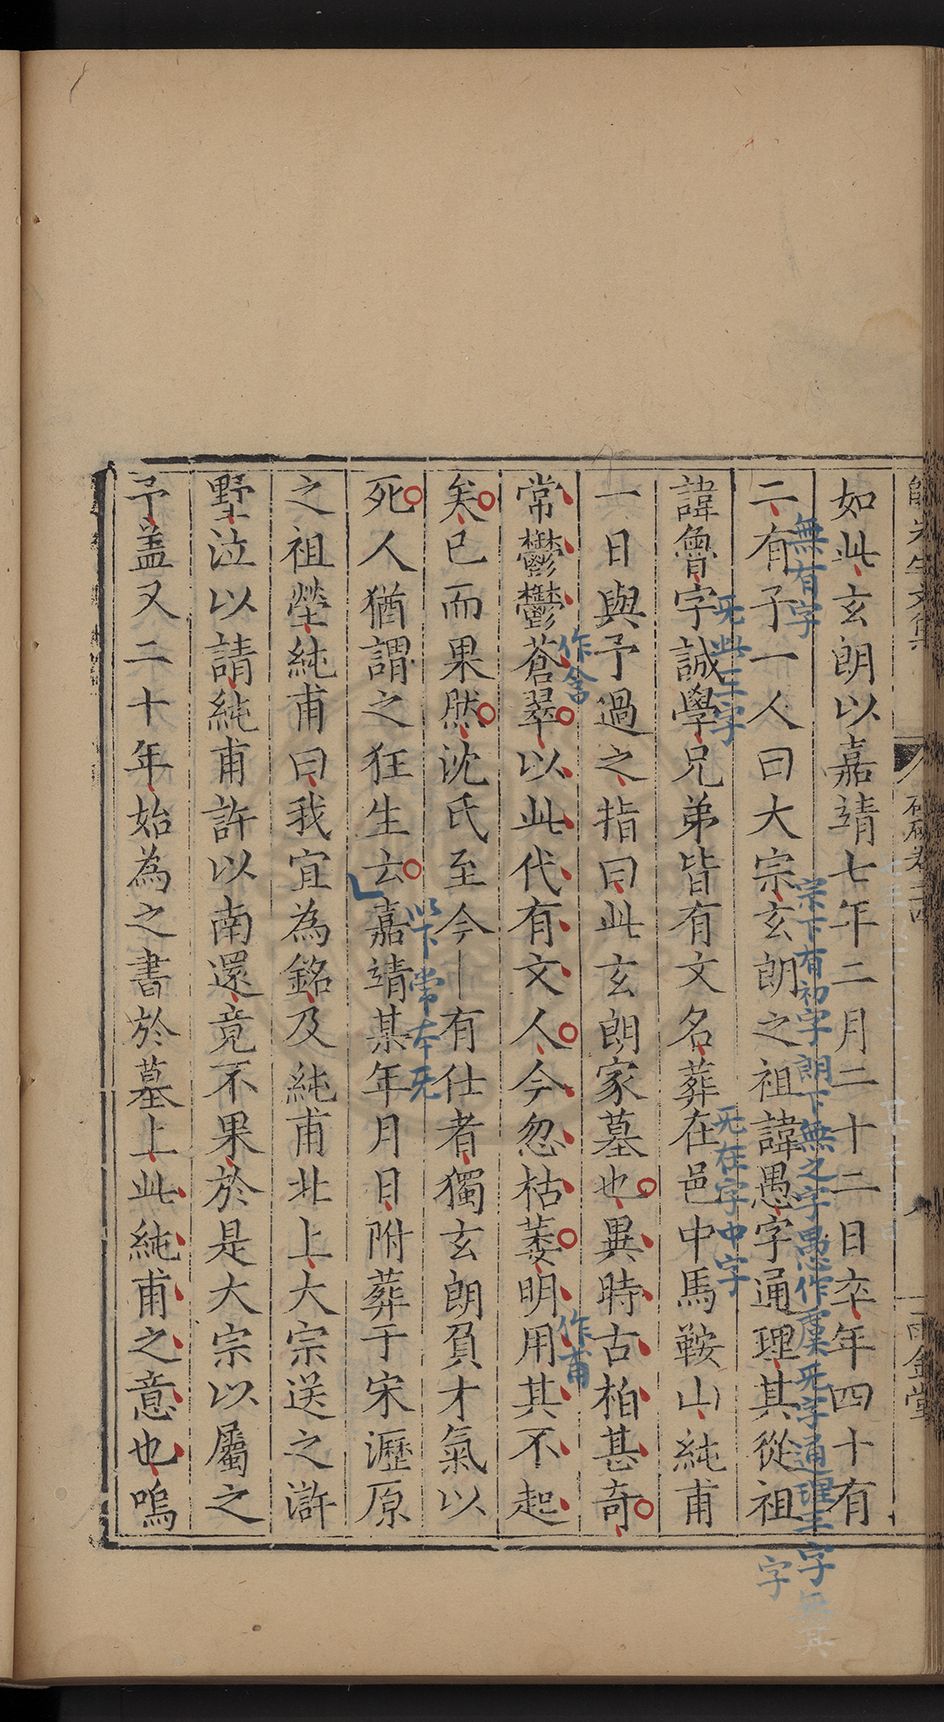 如此玄朗以嘉靖七年二月二十二日卒年四十有
二有子一人曰大宗玄朗之祖諱愚字通理其從祖
無有字
宗下有初字朗下無之字愚作虞无字通理三字無其
字
諱魯字誠學兄弟皆有文名葬在邑中馬鞍山純甫
无此三字
无在字中字
一日與予過之指曰此玄朗家墓也異時古柏甚奇
常鬱鬱蒼翠以此代有文人今忽枯萎明用其不起
作含
作甫
矣已而果然沈氏至今一有仕者獨玄朗負才氣以
死人猶謂之狂生云嘉靖某年月日附葬于宋瀝原
以下常本无
之祖塋純甫曰我宜為銘及純甫北上大宗送之滸
墅泣以請純甫許以南還竟不果於是大宗以屬之
予蓋又二十年始為之書於墓上此純甫之意也嗚